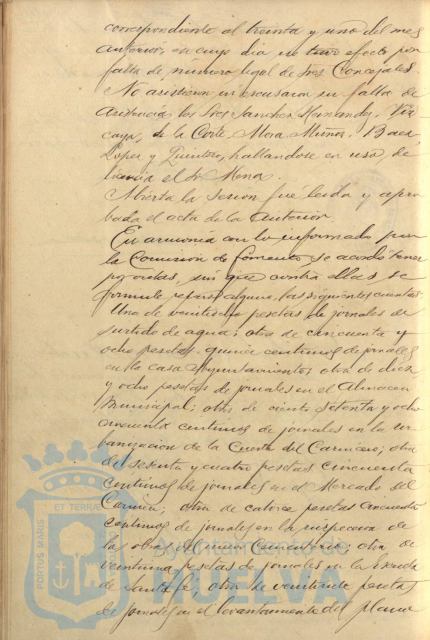 correspondiente al treinta y uno del mes
anterior, en cuyo dia no tuvo efecto por
falta de número legal de Sres Concejales
No asistieron ni escusaron su falta de
asistencia los Sres Sanchez Hernandez, Viz
caya, de la Corte, Mora Muñoz, Baez,
Lopez y Quintero, hallandose en uso de
licencia el Sr Mena.
Abierta la sesion fué leida y apro
bada el acta de la anterior.
En armonia con lo informado por
la Comision de fomento, se acordó tener
por ratas, sin que contra ellas se
formule reparo alguno, las siguientes cuentas:
Una de veintiocho pesetas de jornales en
surtido de agua; otra de cincuenta y
ocho pesetas, quince centimos de jornales
en la casa Ayuntamiento; otra de diez
y ocho pesetas de jornales en el Almacen
Municipal; otra de ciento setenta y ocho
cincuenta centimos de jornales en la ur
banizacion de la Cuesta del Carnicero; otra
de sesenta y cuatro pesetas cincuenta
centimos de jornales en el Mercado del
Carmen; otra de catorce pesetas cincuenta
centimos de jornales en la inspeccion de
las obras del nuevo Cementerio; otra de
veintiuna pesetas de jornales en la Escuela
de Santa Fé; otra de veintisiete pesetas
de jornales en el levantamiento del plano
PORTUS MARIS ET TERRAE
Ayuntamiento de
HUELVA